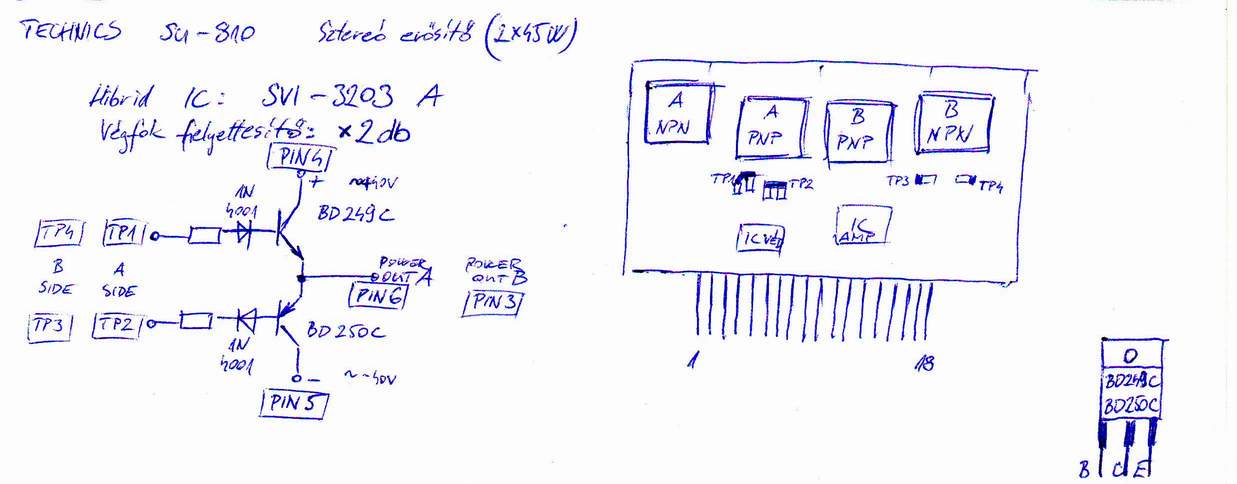 TECHNICS SU-810 Sztereó erősítő (2x45W)
Hibrid IC: SVI-3203 A
Végfok helyettesítő: x2db
PIN4
+
BD249C
1N
4001
TP4 TP1
B
SIDE
A
SIDE
POWER
OUT A
PIN6
POWER
OUT B
PIN3
TP3 TP2
1N
4001
BD250C
- ~-40V
PIN5
A
NPN
A
PNP
B
PNP
B
NPN
TP1
TP2
TP3
TP4
IC
AMP
1
18
BD249C
BD250C
B C E